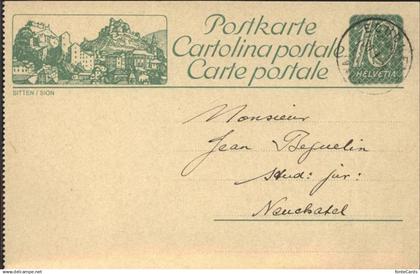 Postkarte
Cartolina postale
Carte postale
10
HELVETIA
SITTEN / SION
Monsieur
Jean Beguelin
stud: jur:
Neuchatel